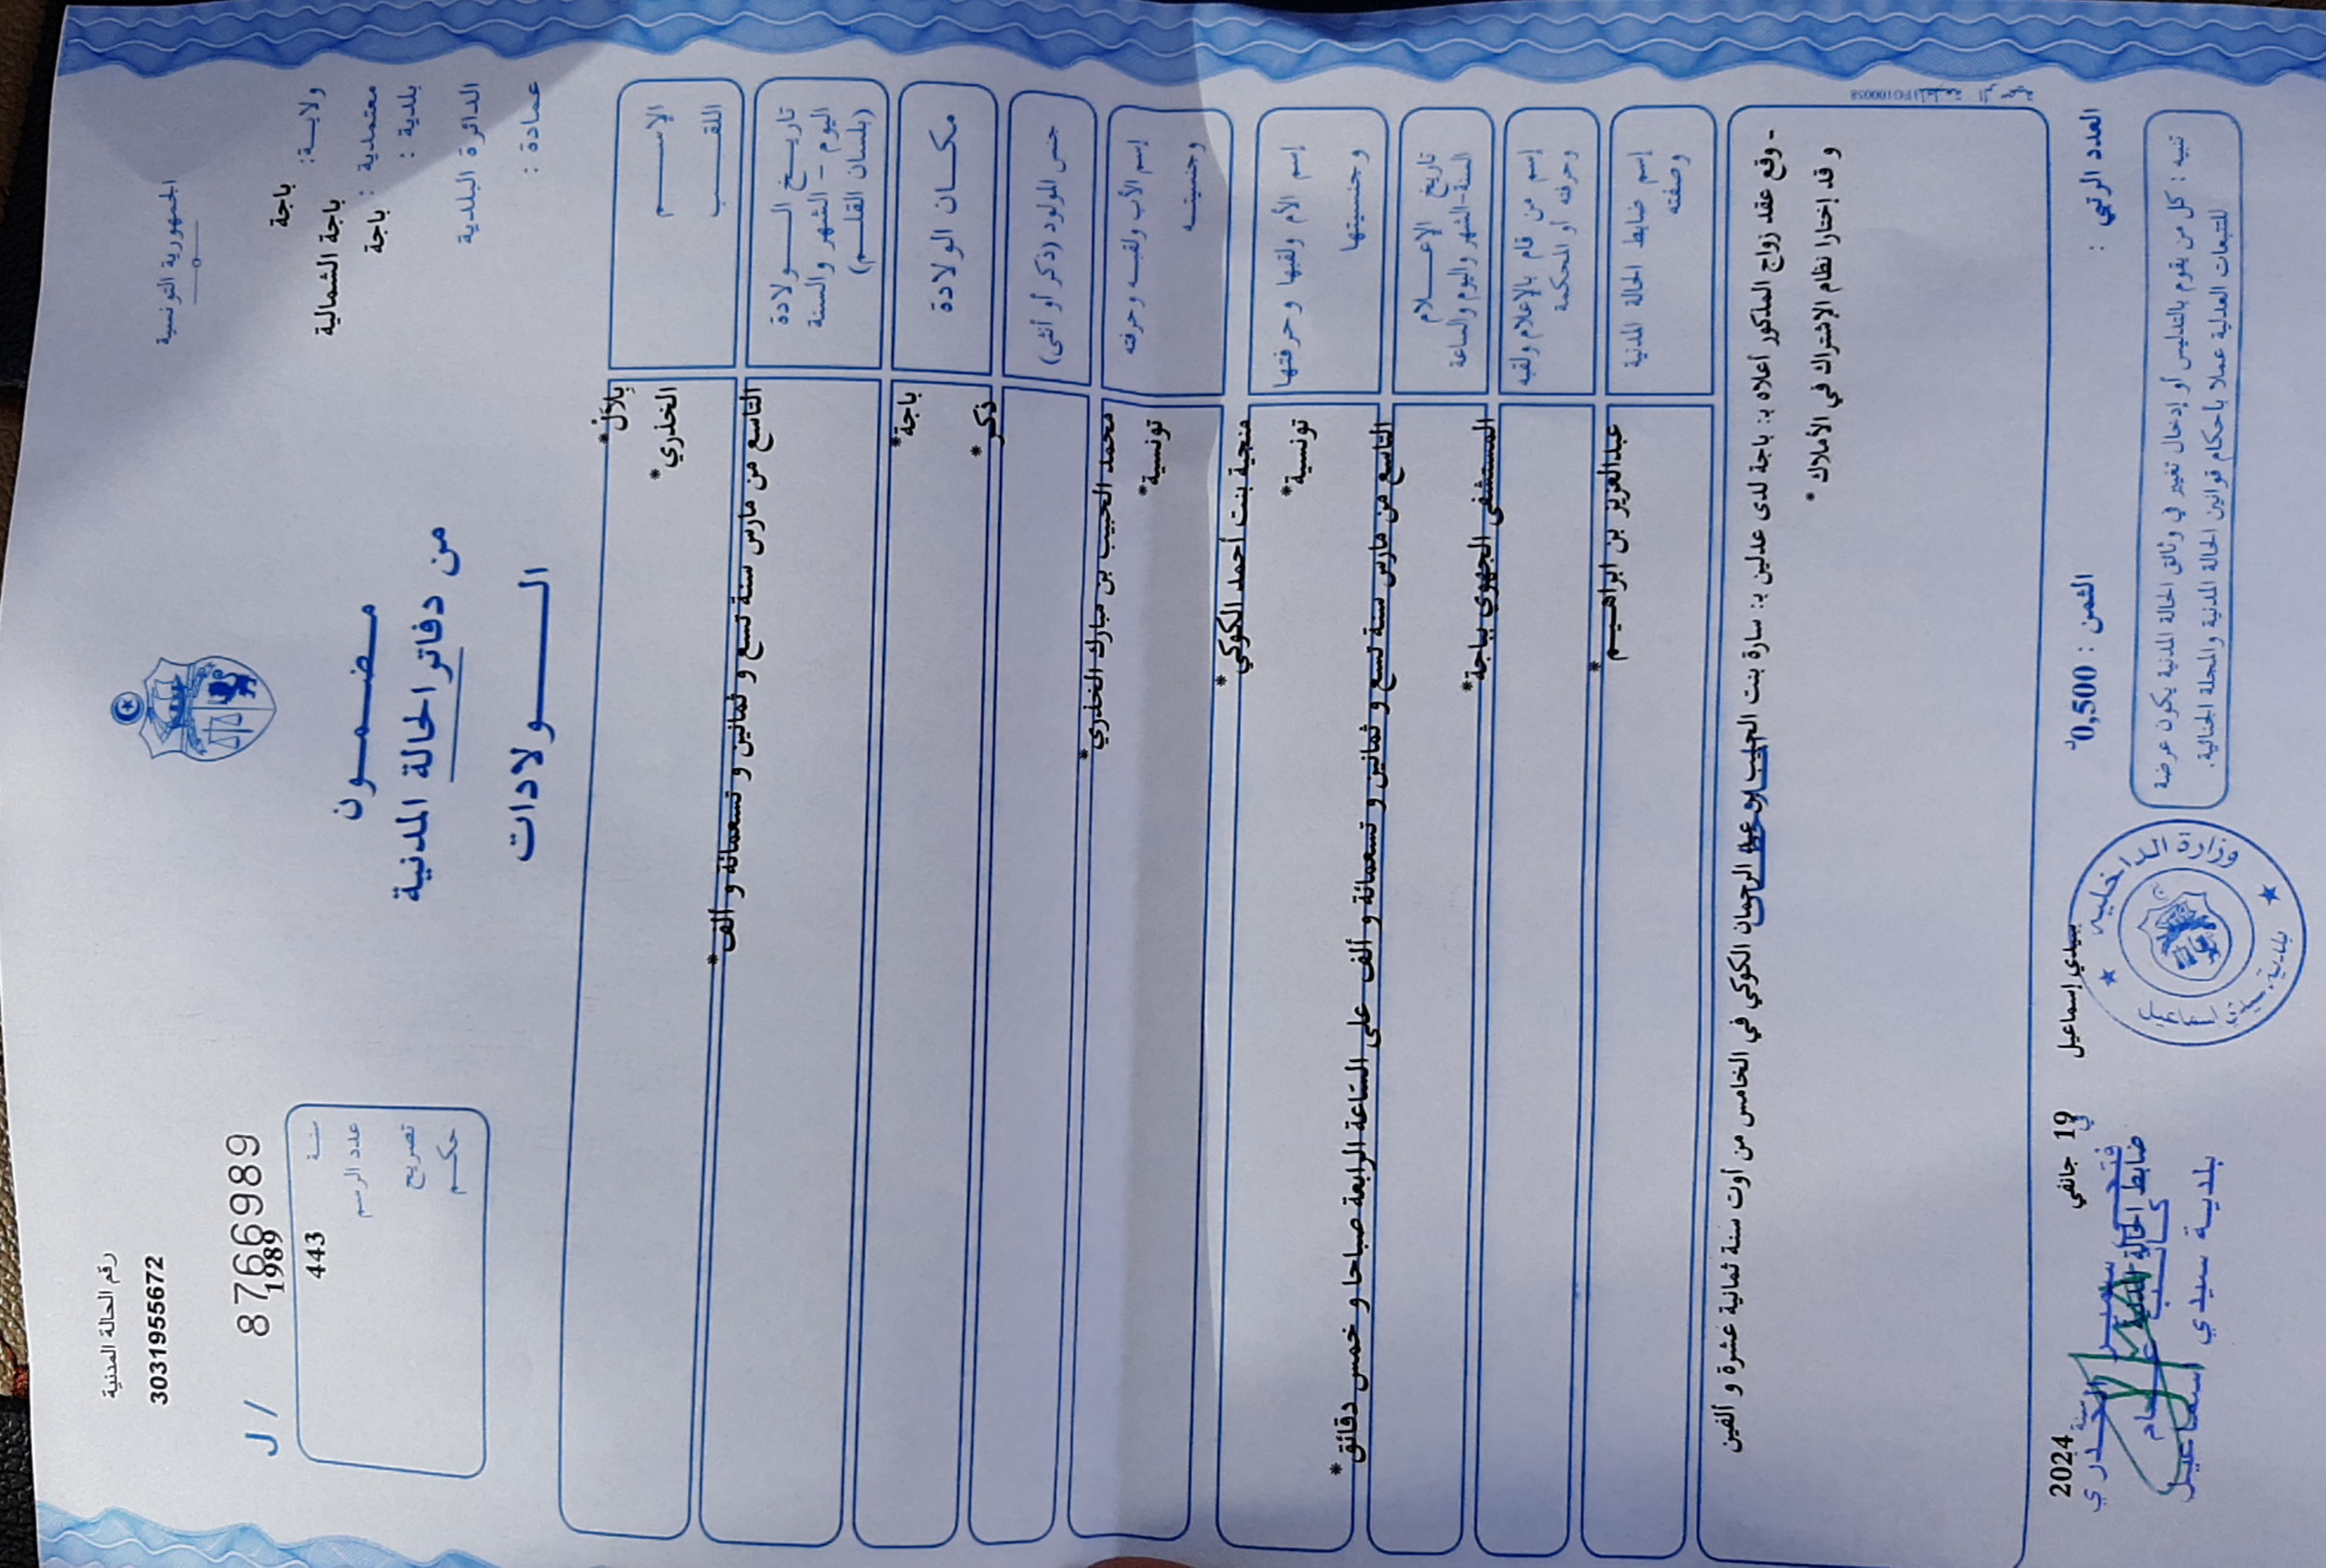 الجمهورية التونسية
رقم الحالة المدنية
3031955672
ولايـة: باجة
معتمدية : باجة الشمالية
بلدية : باجة
الدائرة البلدية
عمادة :
مضمـــون
من دفاتر الحالة المدنية
الـــولادات
ل / 8766989
سنـة 1989
عدد الرسم 443
تصريح
حكـم
الإســـم بِلاَلْ*
اللقـــب الخذري*
تاريـــخ الـــولادة
اليوم – الشهر والسنة
(بلسان القلـم)
التاسع من مارس سنة تسع و ثمانين و تسعمائة و ألف*
مكــان الولادة باجة*
جنس المولود (ذكر أو أنثى) ذكر*
إسم الأب ولقبـه وحرفته محمد الحبيب بن مبارك الخذري*
وجنسيتـه تونسية*
إسم الأم ولقبها وحرفتها منجية بنت أحمد الكوكي*
وجنسيتها تونسية*
تاريخ الإعـــلام
السنة-الشهر واليوم والساعة
التاسع من مارس سنة تسع و ثمانين و تسعمائة و ألف على الساعة الرابعة صباحا و خمس دقائق*
إسم من قام بالإعلام ولقبه
وحرفته أو المحكمة
المستشفى الجهوي بباجة*
إسم ضابط الحالة المدنية
وصفته
عبدالعزيز بن ابراهيم*
- وقع عقد زواج المذكور أعلاه بـ: باجة لدى عدلين بـ: سارة بنت الحبيب بن عبد الرحمان الكوكي في الخامس من أوت سنة ثمانية عشرة و ألفين
و قد إختارا نظام الإشتراك في الأملاك *
العدد الرتبي :
الثمن : 0,500د
بسيدي إسماعيل في 19 جانفي سنة 2024
تنبيه : كل من يقوم بالتدليس أو إدخال تغيير في وثائق الحالة المدنية يكون عرضة
للتتبعات العدلية عملا بأحكام قوانين الحالة المدنية والمجلة الجنائية.
وزارة الداخلية
بلدية سيدي إسماعيل
ضابط الحالة المدنية
بلدية سيدي اسماعيل